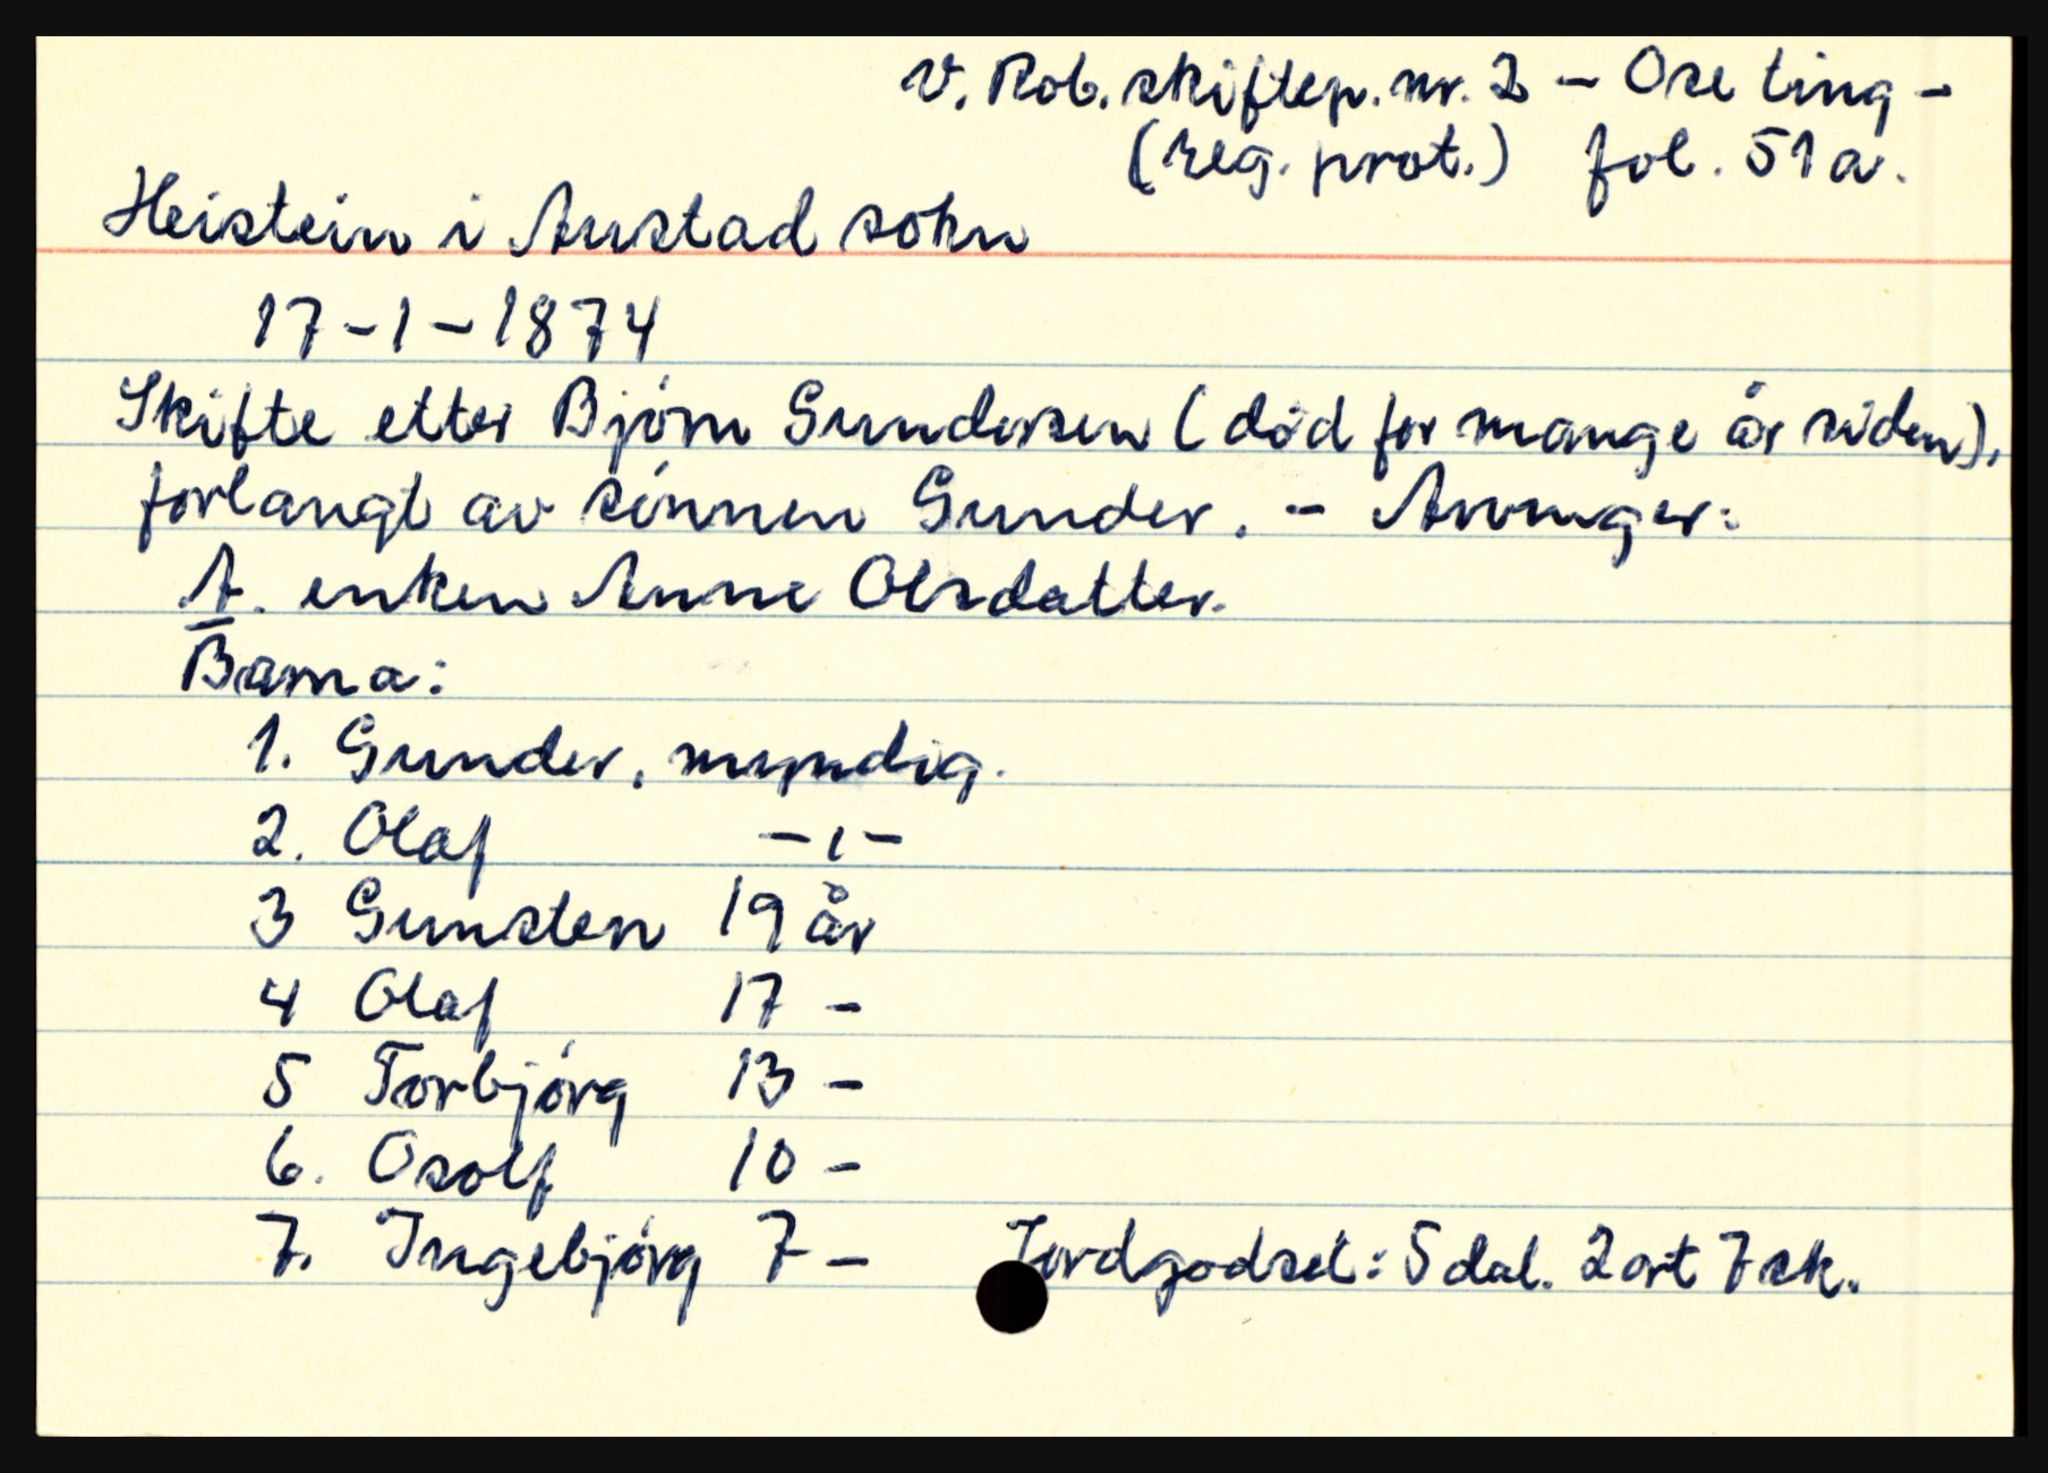 V. Rob. skiftep. nr. 2 - Ose ting -
(reg. prot.) fol. 51a.
Heistein i Austad sokn
17-1-1874
Skifte etter Bjørn Gundersen (død for mange år siden),
forlangt av sønnen Gunder. - Arvinger:
A. enken Anne Olsdatter.
Barna:
1. Gunder, myndig.
2. Olaf -"-
3 Gunsten 19 år
4 Olaf 17 -
5 Torbjørg 13 -
6. Osolf 10 -
7. Ingebjørg 7 - Jordgodset: 5 dal. 2 ort 7 sk.